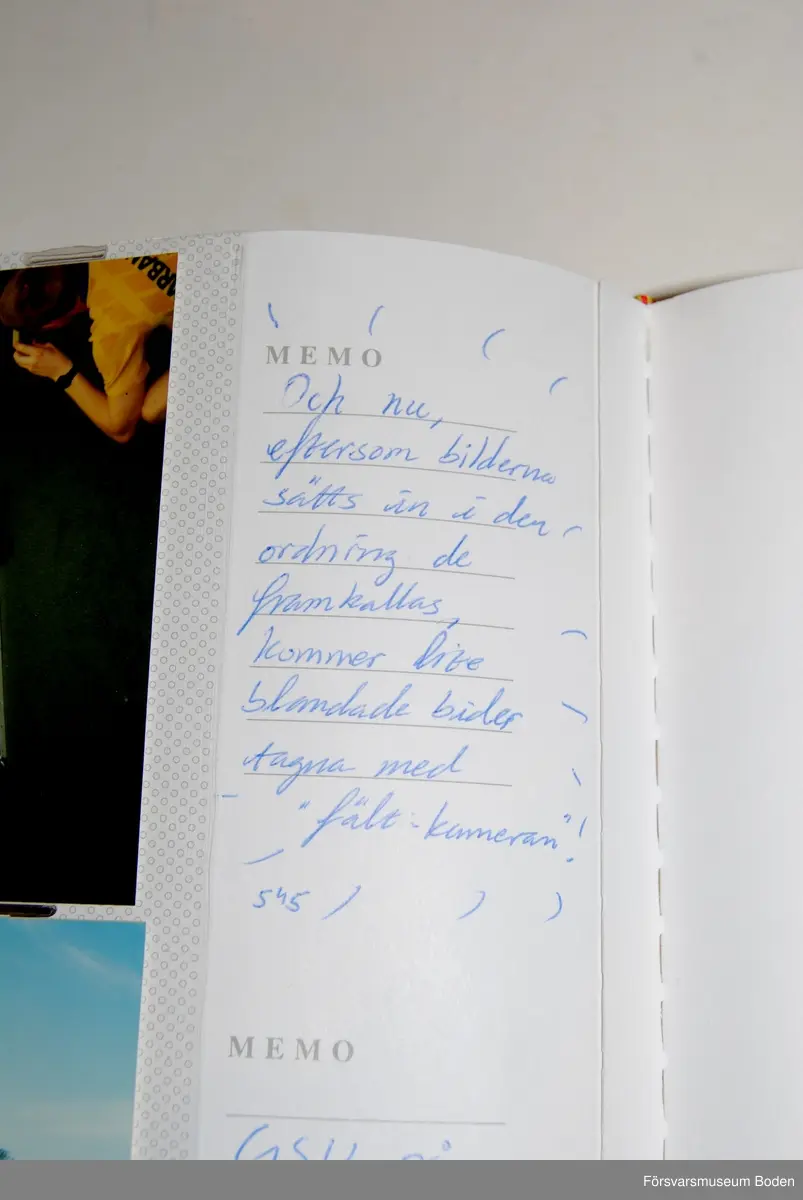 ARBA
MEMO
Och nu,
eftersom bilderna
sätts in i den
ordning de
framkallas,
kommer lite
blandade bider
tagna med
"fält-kameran"!
545
MEMO
Försvarsmuseum Boden